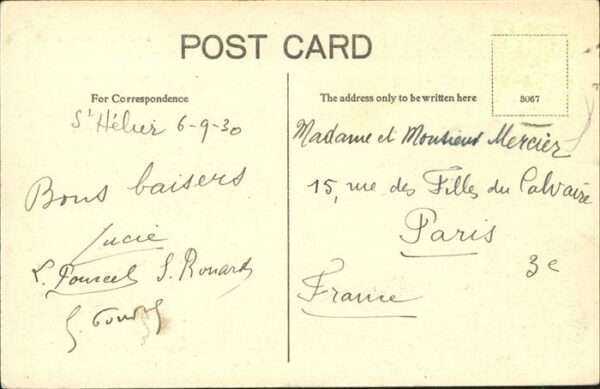 POST CARD
For Correspondence
The address only to be written here
3067
St Hélier 6-9-30
Bons baisers
Lucie
Madame et Monsieur Mercier
15, rue des Filles du Calvaire
Paris
3e
France